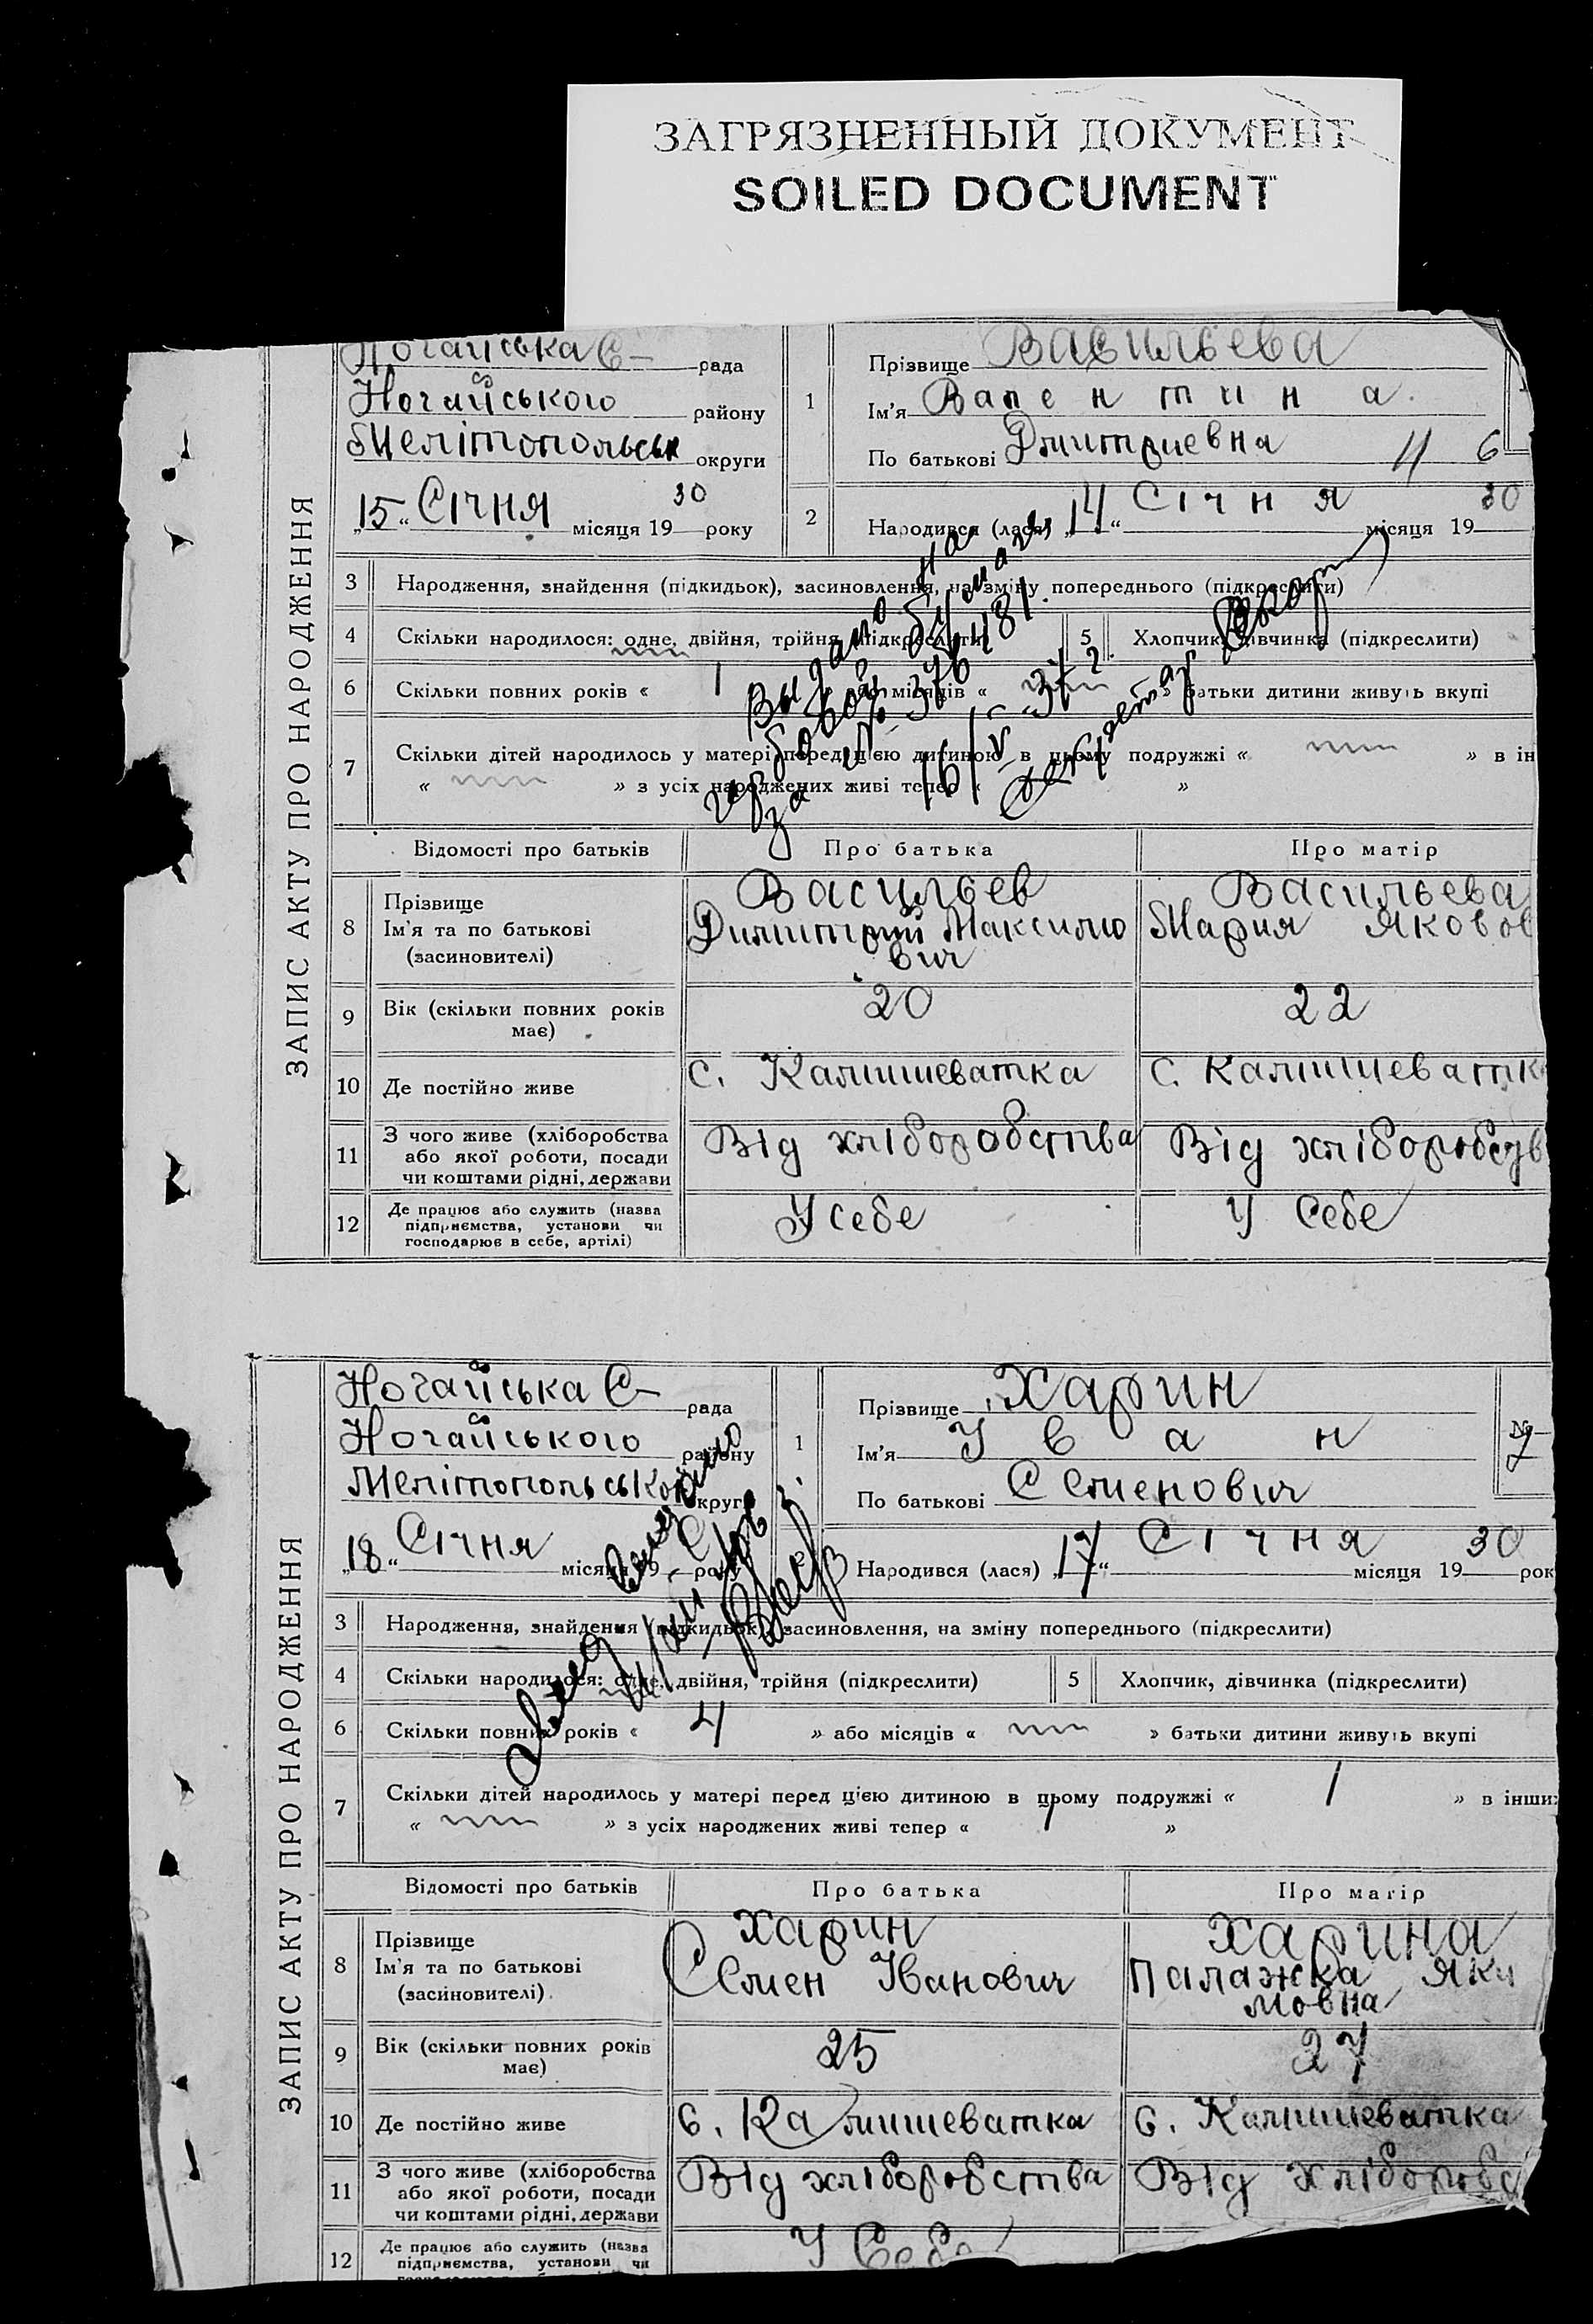 ЗАГРЯЗНЕННЫЙ ДОКУМЕНТ
SOILED DOCUMENT
ЗАПИС АКТУ ПРО НАРОДЖЕННЯ
Ногайська С— рада
Ногайського району
Мелітопольськ округи
„15“ Січня місяця 1930 року
1
Прізвище Васильева
Ім'я Валентина.
По батькові Дмитриевна
6
2
Народився (лася) „14“ Січня місяця 1930
3 Народження, знайдення (підкидьок), засиновлення, на зміну попереднього (підкреслити)
4 Скільки народилося: одне, двійня, трійня (підкреслити)
5 Хлопчик, дівчинка (підкреслити)
6 Скільки повних років « 1 » або місяців « » батьки дитини живуть вкупі
7 Скільки дітей народилось у матері перед цією дитиною в цьому подружжі « » в ін
« » з усіх народжених живі тепер « »
Выдано на
гербовой бумаге
за № 376481.
16/V-37 г.
Секретарь
Відомості про батьків
Про батька
Про матір
8 Прізвище
Ім'я та по батькові
(засиновителі)
Васильев
Димитрий Максимо
вич
Васильева
Мария Яковов
9 Вік (скільки повних років
має)
20
22
10 Де постійно живе
с. Камишеватка
с. Камишеватк
11 З чого живе (хліборобства
або якої роботи, посади
чи коштами рідні, держави
Від хліборобства
Від хліборобств
12 Де працює або служить (назва
підприємства, установи чи
господарює в себе, артілі)
У себе
У себе
ЗАПИС АКТУ ПРО НАРОДЖЕННЯ
Ногайська С— рада
Ногайського району
Мелітопольської округи
„18“ Січня місяця 19 року
1
Прізвище Харин
Ім'я Іван
По батькові Семенович
№
7
2
Народився (лася) „17“ Січня місяця 1930 рок
3 Народження, знайдення (підкидьок), засиновлення, на зміну попереднього (підкреслити)
4 Скільки народилося: одне, двійня, трійня (підкреслити)
5 Хлопчик, дівчинка (підкреслити)
6 Скільки повних років « 4 » або місяців « » батьки дитини живуть вкупі
7 Скільки дітей народилось у матері перед цією дитиною в цьому подружжі « 1 » в інши
« » з усіх народжених живі тепер « 1 »
Відомості про батьків
Про батька
Про матір
8 Прізвище
Ім'я та по батькові
(засиновителі)
Харин
Семен Іванович
Харина
Палажка Яки
мовна
9 Вік (скільки повних років
має)
25
27
10 Де постійно живе
с. Камишеватка
с. Камишеватка
11 З чого живе (хліборобства
або якої роботи, посади
чи коштами рідні, держави
Від хліборобства
Від хліборобс
12 Де працює або служить (назва
підприємства, установи чи
У себе